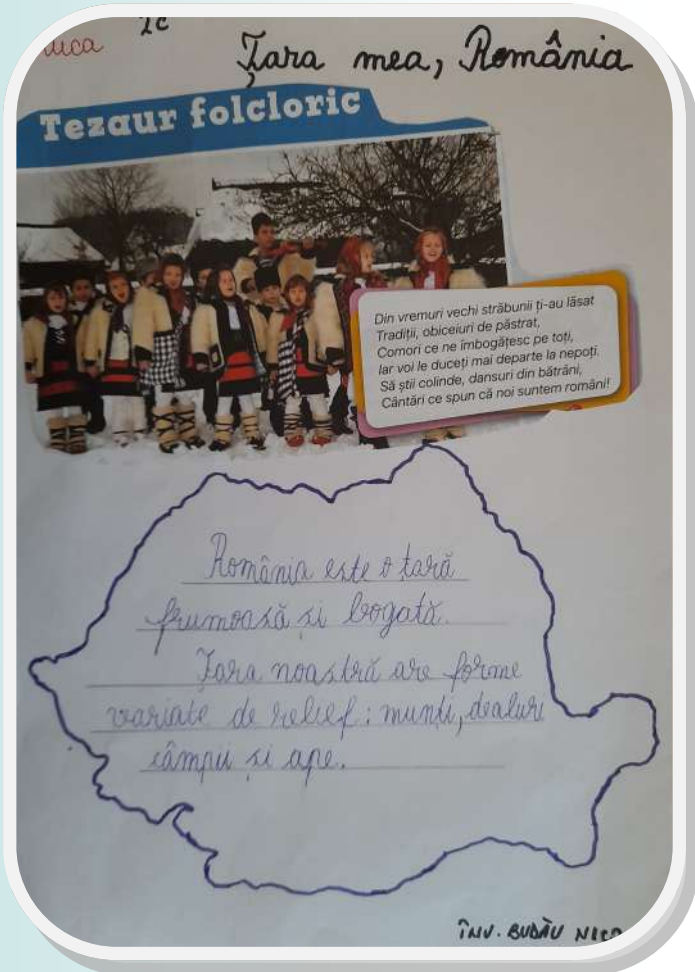 2c
Țara mea, România
Tezaur folcloric
Din vremuri vechi străbunii ți-au lăsat
Tradiții, obiceiuri de păstrat,
Comori ce ne îmbogățesc pe toți,
Iar voi le duceți mai departe la nepoți.
Să știi colinde, dansuri din bătrâni,
Cântări ce spun că noi suntem români!
România este o țară
frumoasă și bogată.
Țara noastră are forme
variate de relief: munți, dealuri
câmpii și ape.
ÎNV. BUDĂU